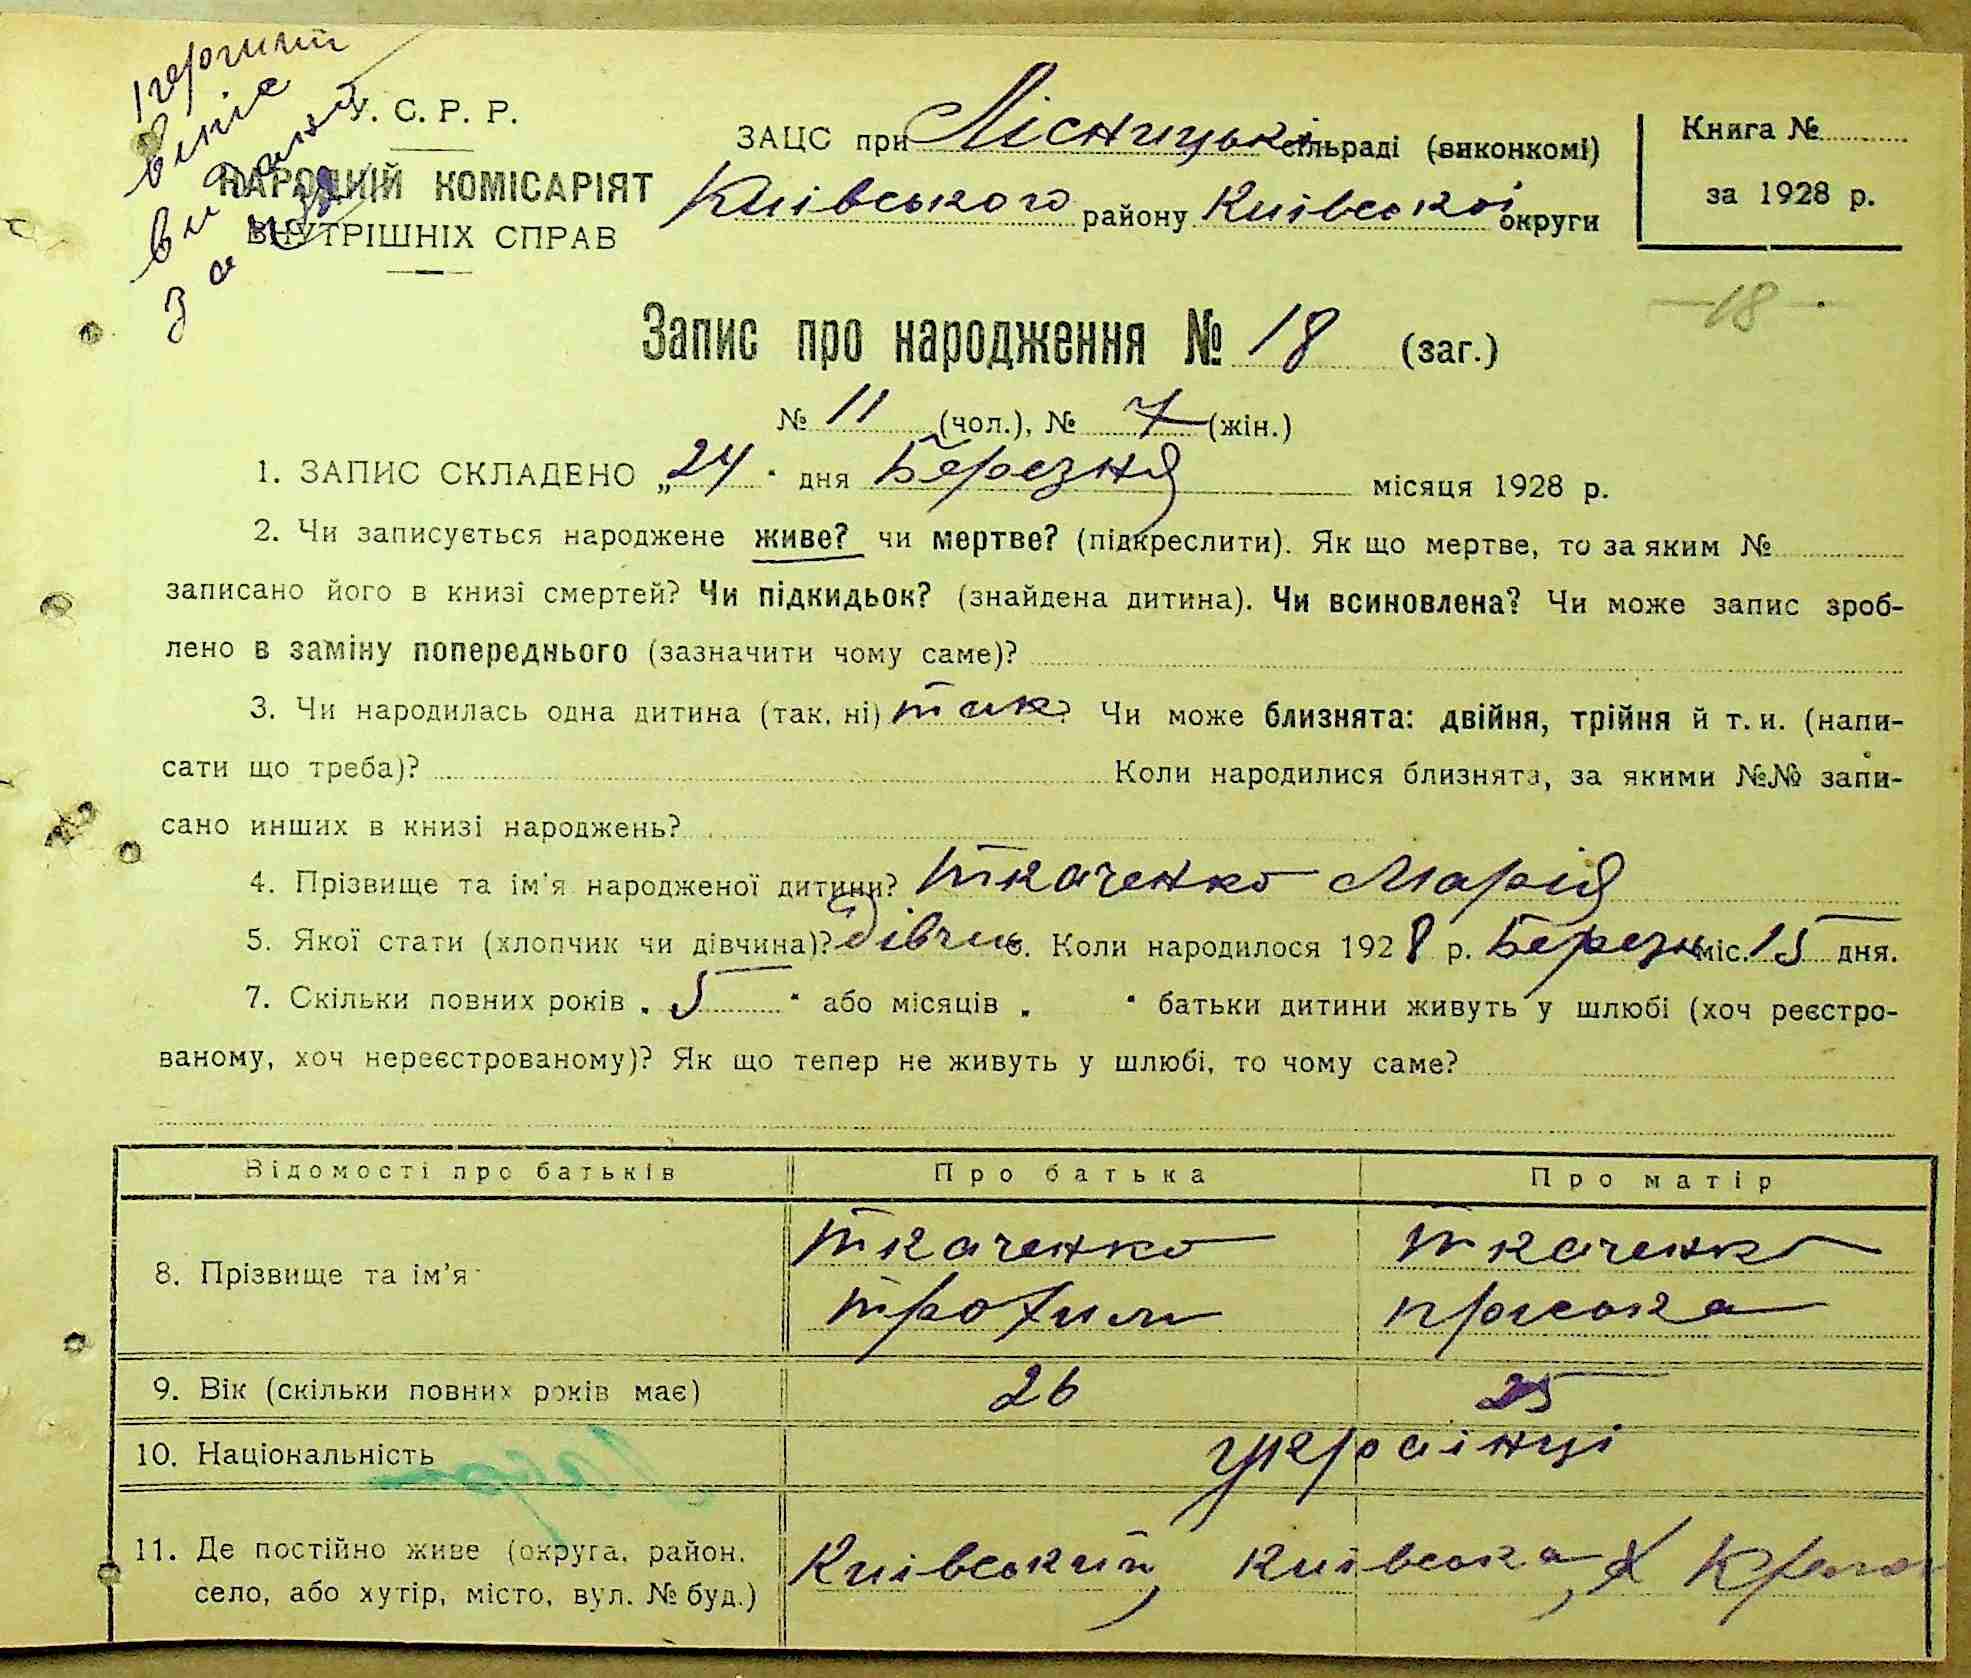 Первий
витяг
виданий
за №
У. С. Р. Р.
НАРОДНІЙ КОМІСАРІЯТ
ВНУТРІШНІХ СПРАВ
ЗАЦС при Лісницькі сільраді (виконкомі)
Київського району Київської округи
Книга №
за 1928 р.
18
Запис про народження № 18 (заг.)
№ 11 (чол.), № 7 (жін.)
1. ЗАПИС СКЛАДЕНО „24" дня Березня місяця 1928 р.
2. Чи записується народжене живе? чи мертве? (підкреслити). Як що мертве, то за яким №
записано його в книзі смертей? Чи підкидьок? (знайдена дитина). Чи всиновлена? Чи може запис зроб-
лено в заміну попереднього (зазначити чому саме)?
3. Чи народилась одна дитина (так, ні) так? Чи може близнята: двійня, трійня й т. и. (напи-
сати що треба)? Коли народилися близнята, за якими №№ запи-
сано инших в книзі народжень?
4. Прізвище та ім'я народженої дитини? Ткаченко Марія
5. Якої стати (хлопчик чи дівчина)? Дівчин 6. Коли народилося 1928 р. Березн міс. 15 дня.
7. Скільки повних років „5" або місяців „ " батьки дитини живуть у шлюбі (хоч реєстро-
ваному, хоч нереєстрованому)? Як що тепер не живуть у шлюбі, то чому саме?
Відомості про батьків Про батька Про матір
8. Прізвище та ім'я Ткаченко Трохим Ткаченко Приська
9. Вік (скільки повних років має) 26 25
10. Національність Українці
11. Де постійно живе (округа, район,
село, або хутір, місто, вул. № буд.) Київський, Київська, х